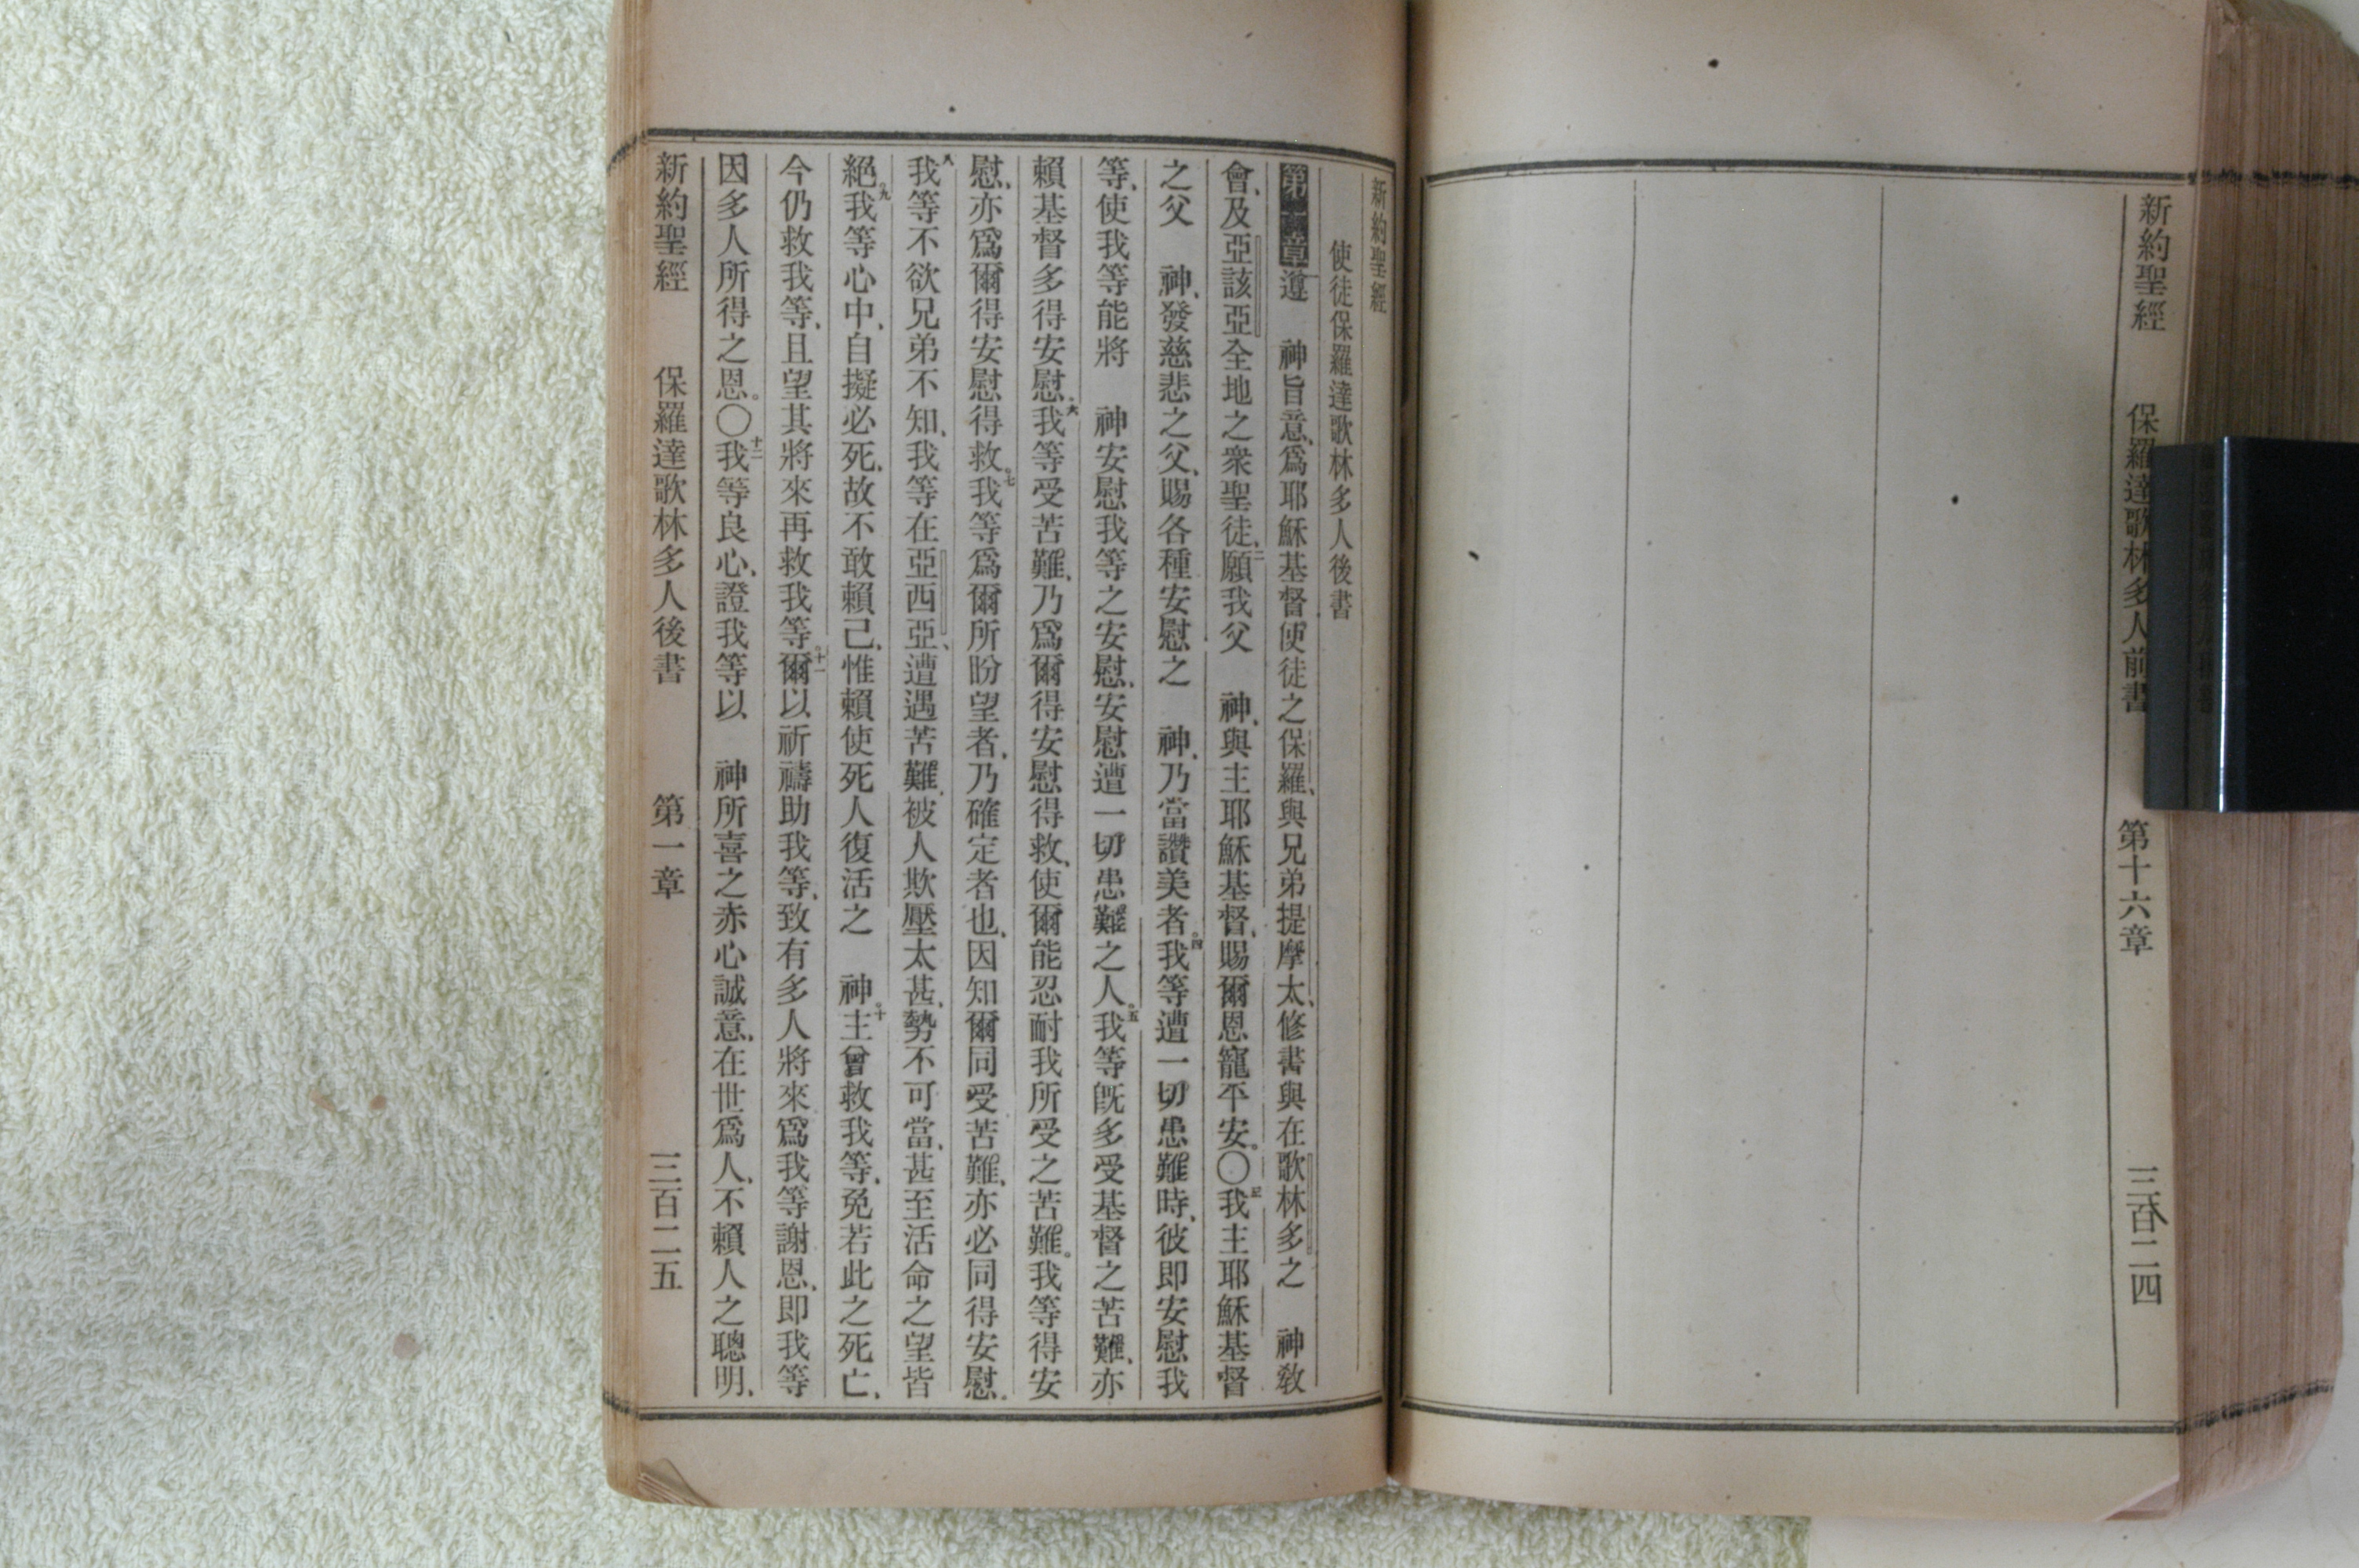 新約聖經 保羅達歌林多人前書 第十六章 三百二四
新約聖經
使徒保羅達歌林多人後書
第一章遵 神旨意、爲耶穌基督使徒之保羅、與兄弟提摩太、修書與在歌林多之 神敎
會、及亞該亞全地之衆聖徒、二願我父 神、與主耶穌基督、賜爾恩寵平安。〇三我主耶穌基督
之父 神、發慈悲之父、賜各種安慰之 神、乃當讚美者。四我等遭一切患難時、彼即安慰我
等、使我等能將 神安慰我等之安慰、安慰遭一切患難之人。五我等旣多受基督之苦難、亦
賴基督多得安慰。六我等受苦難、乃爲爾得安慰得救、使爾能忍耐我所受之苦難。我等得安
慰、亦爲爾得安慰得救。七我等爲爾所盼望者、乃確定者也、因知爾同受苦難、亦必同得安慰。
八我等不欲兄弟不知、我等在亞西亞、遭遇苦難、被人欺壓太甚、勢不可當、甚至活命之望皆
絕。九我等心中、自擬必死、故不敢賴己、惟賴使死人復活之 神。十主曾救我等、免若此之死亡、
今仍救我等、且望其將來再救我等。十一爾以祈禱助我等、致有多人將來爲我等謝恩、即我等
因多人所得之恩。〇十二我等良心、證我等以 神所喜之赤心誠意、在世爲人、不賴人之聰明、
新約聖經 保羅達歌林多人後書 第一章 三百二五